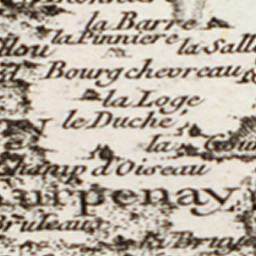 la Barre
la Pinniere
la Sall
Bourgchevreau
la Loge
le Duché
la Gour
Champ d'Oiseau
Turpenay
Bruleau
la Bruy